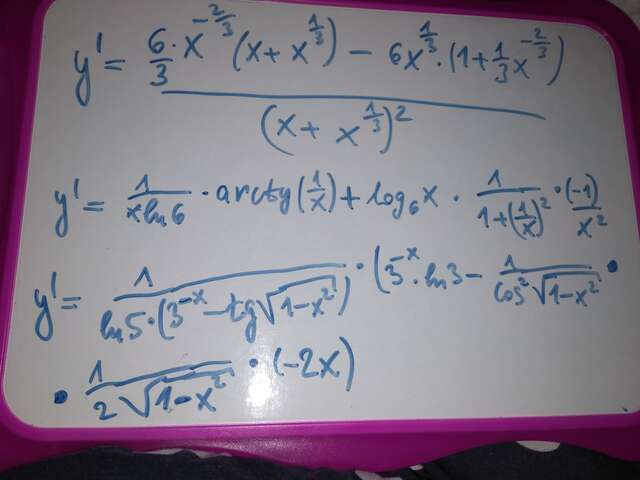 y' = \frac{\frac{6}{3} \cdot x^{-\frac{2}{3}} (x + x^{\frac{1}{3}}) - 6x^{\frac{1}{3}} \cdot (1 + \frac{1}{3} x^{-\frac{2}{3}})}{(x + x^{\frac{1}{3}})^2}
y' = \frac{1}{x \ln 6} \cdot arctg(\frac{1}{x}) + \log_6 x \cdot \frac{1}{1 + (\frac{1}{x})^2} \cdot \frac{(-1)}{x^2}
y' = \frac{1}{\ln 5 \cdot (3^{-x} - tg \sqrt{1-x^2})} \cdot (3^{-x} \cdot \ln 3 - \frac{1}{\cos^2 \sqrt{1-x^2}} \cdot
\cdot \frac{1}{2\sqrt{1-x^2}} \cdot (-2x)